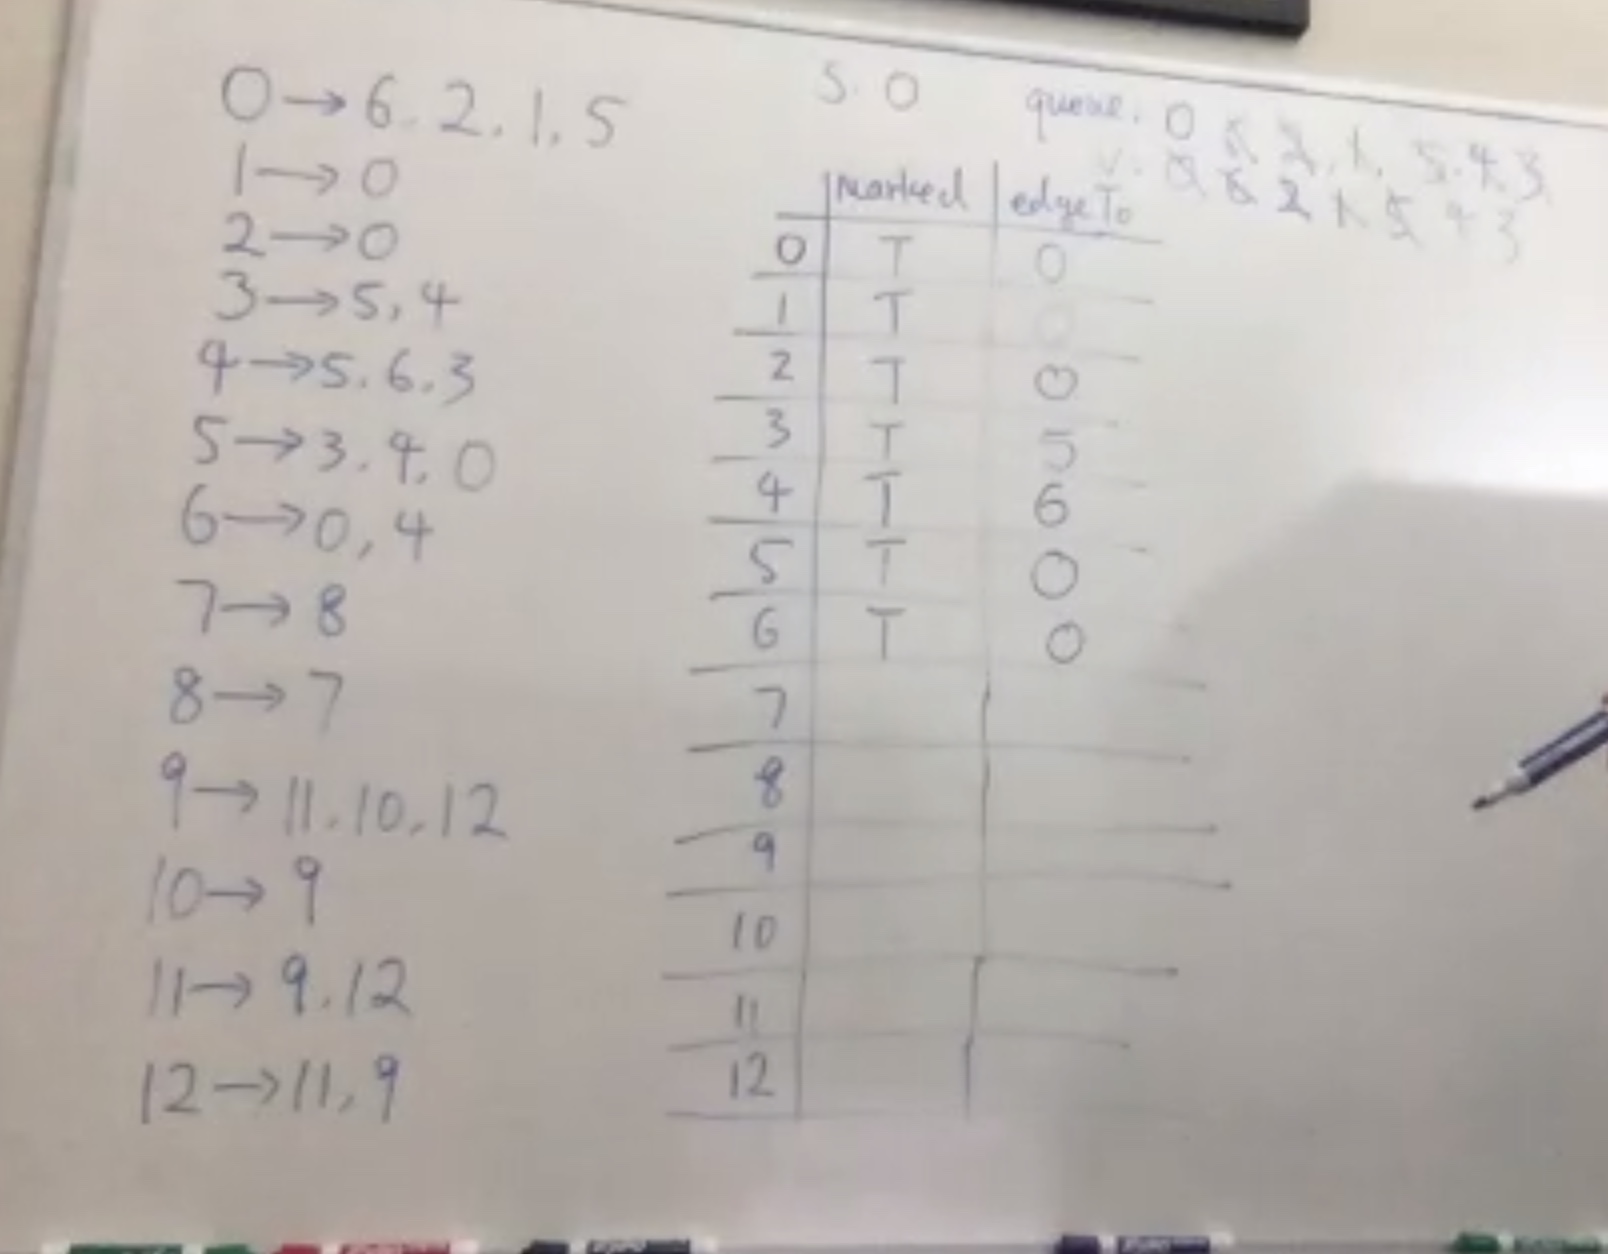 0→6.2.1.5
1→0
2→0
3→5,4
4→5.6.3
5→3.4.0
6→0,4
7→8
8→7
9→11.10.12
10→9
11→9.12
12→11,9
S.0
queue. 0 6 2. 1. 5.4.3
v. 0 6 2 1 5 4 3
marked edgeTo
0 T 0
1 T 0
2 T 0
3 T 5
4 T 6
5 T 0
6 T 0
7
8
9
10
11
12